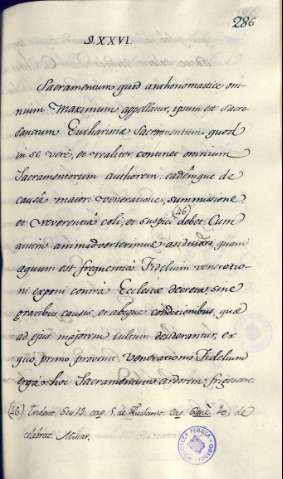 286
§XXVI.
Sacramentum quod anthonomastice om
nium Maximum appellatur, ipsum est Sacro
sanctum Eucharistiæ Sacramentum, quod
in se verè, et realiter continet omnium
Sacramentorum authorem, eademque de
causa maiori veneratione, summissione
et reverentia coli, et suspici debet. (26) Cum
autem animadverterimus quam
æquum est frequentia Fidelium veneratio
ni exponi contra Ecclesiæ decreta, sine
gravibus causis, et absque conditionibus, quæ
ad ejus majorem cultum desiderantur, ex
quo primo provenit venerationis Fidelium
erga hoc Sacramentum ardorem frigescere.
(26) Trident. Ses. 13. cap. 5. de
celebrat. Missar.